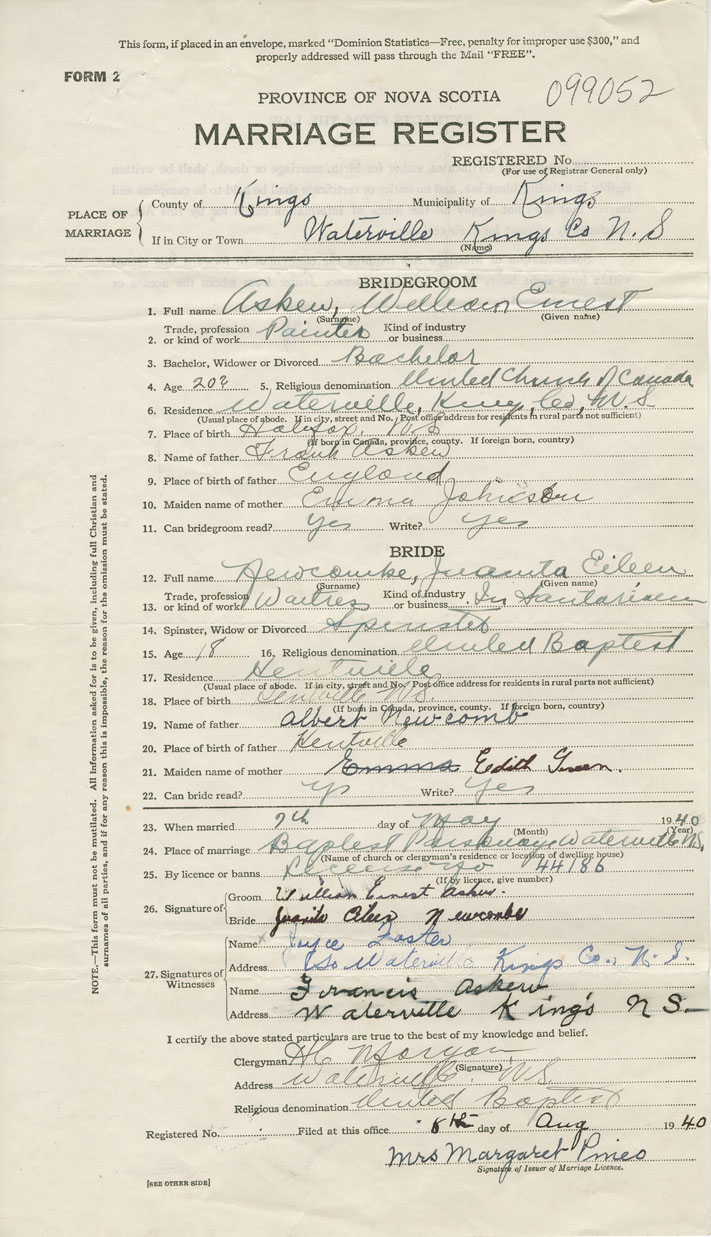 This form, if placed in an envelope, marked "Dominion Statistics—Free, penalty for improper use $300," and
properly addressed will pass through the Mail "FREE".
FORM 2
099052
PROVINCE OF NOVA SCOTIA
MARRIAGE REGISTER
REGISTERED No.
(For use of Registrar General only)
PLACE OF MARRIAGE
County of Kings Municipality of Kings
If in City or Town Waterville Kings Co N. S
(Name)
BRIDEGROOM
1. Full name Askew, William Ernest
(Surname) (Given name)
2. Trade, profession or kind of work Painter Kind of industry or business
3. Bachelor, Widower or Divorced Bachelor
4. Age 20? 5. Religious denomination United Church of Canada
6. Residence Waterville, Kings, Co, N.S
(Usual place of abode. If in city, street and No. Post office address for residents in rural parts not sufficient)
7. Place of birth Halifax N.S
(If born in Canada, province, county. If foreign born, country)
8. Name of father Frank Askew
9. Place of birth of father England
10. Maiden name of mother Emma Johnson
11. Can bridegroom read? Yes Write? Yes
BRIDE
12. Full name Newcombe, Juanita Eileen
(Surname) (Given name)
13. Trade, profession or kind of work Waitress Kind of industry or business In Sanitarium
14. Spinster, Widow or Divorced Spinster
15. Age 18 16. Religious denomination United Baptist
17. Residence Kentville
(Usual place of abode. If in city, street and No. Post office address for residents in rural parts not sufficient)
18. Place of birth N.S.
(If born in Canada, province, county. If foreign born, country)
19. Name of father Albert Newcomb
20. Place of birth of father Kentville
21. Maiden name of mother Emma Edith Green.
22. Can bride read? Yes Write? Yes
23. When married 7th day of May 1940
(Month) (Year)
24. Place of marriage Baptist Parsonage Waterville N.S.
(Name of church or clergyman's residence or location of dwelling house)
25. By licence or banns License no 44186
(If by licence, give number)
26. Signature of
Groom William Ernest Askew.
Bride Juanita Eileen Newcombe
27. Signatures of Witnesses
Name Joyce Foster
Address So Waterville Kings Co., N. S.
Name Francis Askew
Address Waterville King's N S.
I certify the above stated particulars are true to the best of my knowledge and belief.
Clergyman Morgan
(Signature)
Address Waterville. N.S.
Religious denomination United Baptist
Registered No. Filed at this office 8th day of Aug 1940
Mrs Margaret Pineo
Signature of Issuer of Marriage Licence.
[SEE OTHER SIDE]
NOTE.—This form must not be mutilated. All information asked for is to be given, including full Christian and
surnames of all parties, and if for any reason this is impossible, the reason for the omission must be stated.